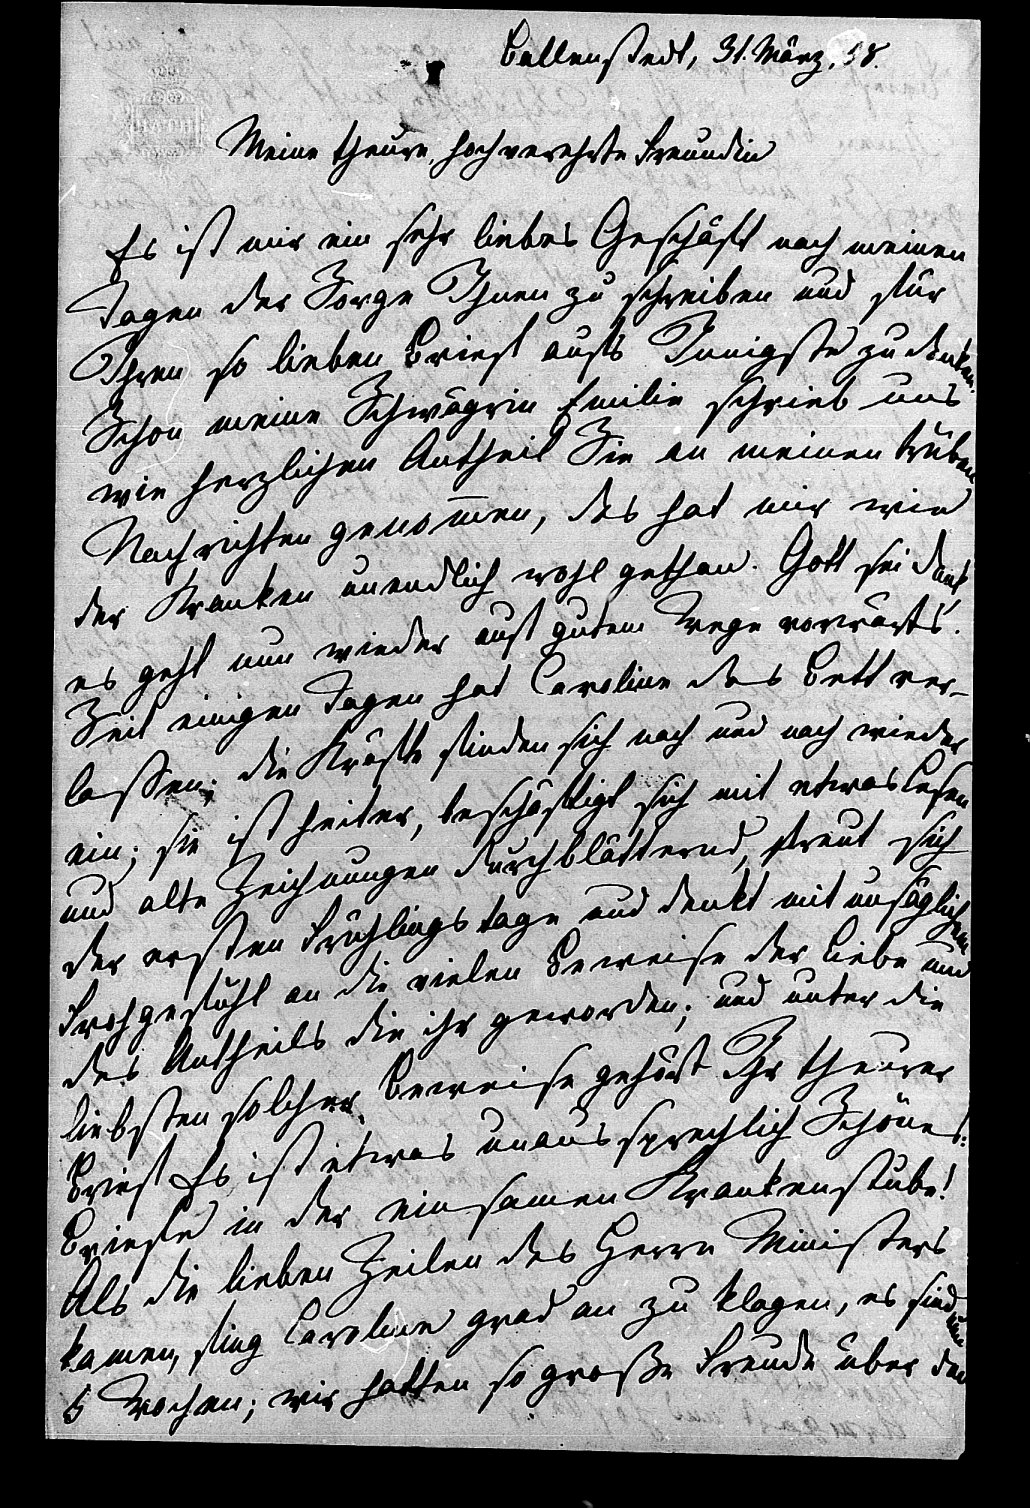 Ballenstedt, 31. März, 58.
Meine theure, hochverehrte Freundin
Es ist mir ein sehr liebes Geschäft nach meinen
Tagen der Sorge Ihnen zu schreiben und für
Ihren so lieben Brief aufs Innigste zu danken.
Schon meine Schwägrin Emilie schrieb uns
wie herzlichen Antheil Sie an meinen trüben
Nachrichten genom̄en, das hat mir wie
der Kranken unendlich wohl gethan. Gott sei Dank
es geht nun wieder auf gutem Wege vorwärts.
Seit einigen Tagen hat Caroline das Bett ver-
lassen; die Kräfte finden sich nach und nach wieder
ein; sie ist heiter, beschäftigt sich mit etwas Lesen
und alte Zeichnungen durchblätternd, freut sich
der ersten Frühlingstage und denkt mit unsäglichem
Frohgefühl an die vielen Beweise der Liebe und
des Antheils die ihr geworden; und unter die
liebsten solcher Beweise gehört Ihr theurer
Brief. Es ist etwas unaussprechlich Schönes:
Briefe in der einsamen Krankenstube!
Als die lieben Zeilen des Herrn Ministers
kamen, fing Caroline grad an zu klagen, es sind nun
5 Wochen; wir hatten so große Freude über den